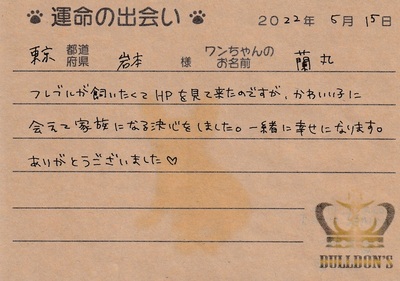 運命の出会い 2022年 5月 15日
東京 都道府県 岩本 様 ワンちゃんのお名前 蘭丸
フレブルが飼いたくてHPを見て来たのですが、かわいい子に
会えて家族になる決心をしました。一緒に幸せになります。
ありがとうございました♡
BULLDON'S